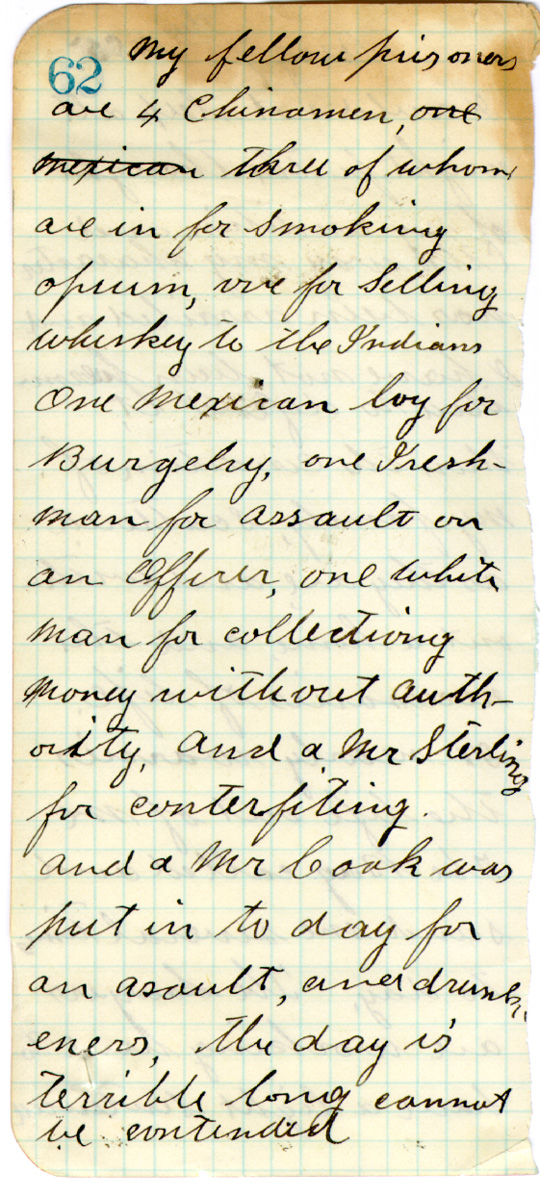 62
My fellow prisoners
are 4 Chinamen, one
mexican three of whom
are in for smoking
opium, one for selling
whiskey to the Indians
One Mexican boy for
Burgelry, one Iresh-
man for assault on
an Officer, one white
man for collectiong
money without auth-
ority, and a Mr Sterling
for conterfiting.
and a Mr Cook was
put in to day for
an asault, and drunk-
eners, the day is
terrible long cannot
be contended